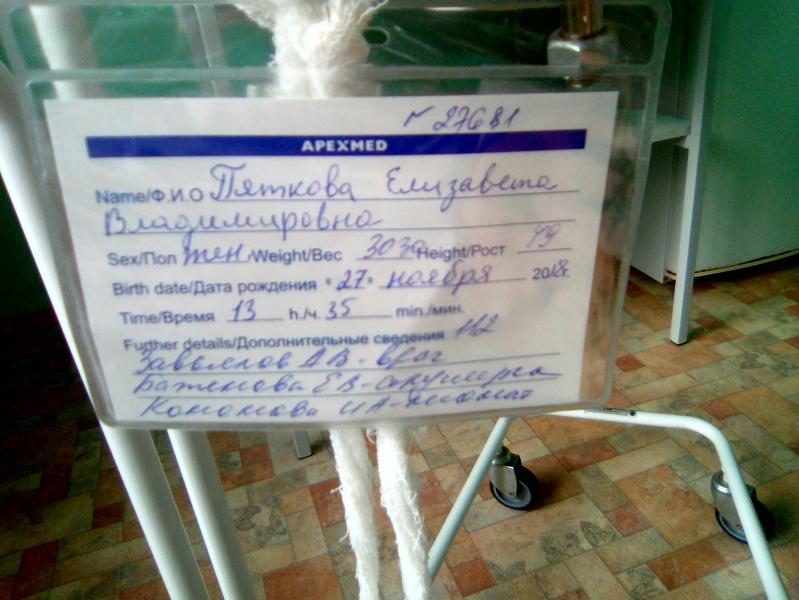 № 27681
APEXMED
Name/Ф.И.О Пяткова Елизавета
Владимировна
Sex/Пол жен Weight/Вес 3030 Height/Рост 49
Birth date/Дата рождения «27» ноября 2018г.
Time/Время 13 h./ч. 35 min./мин.
Further details/Дополнительные сведения
Завьялов АВ - врач
Баженова ЕВ - акушерка
Кононова НА -